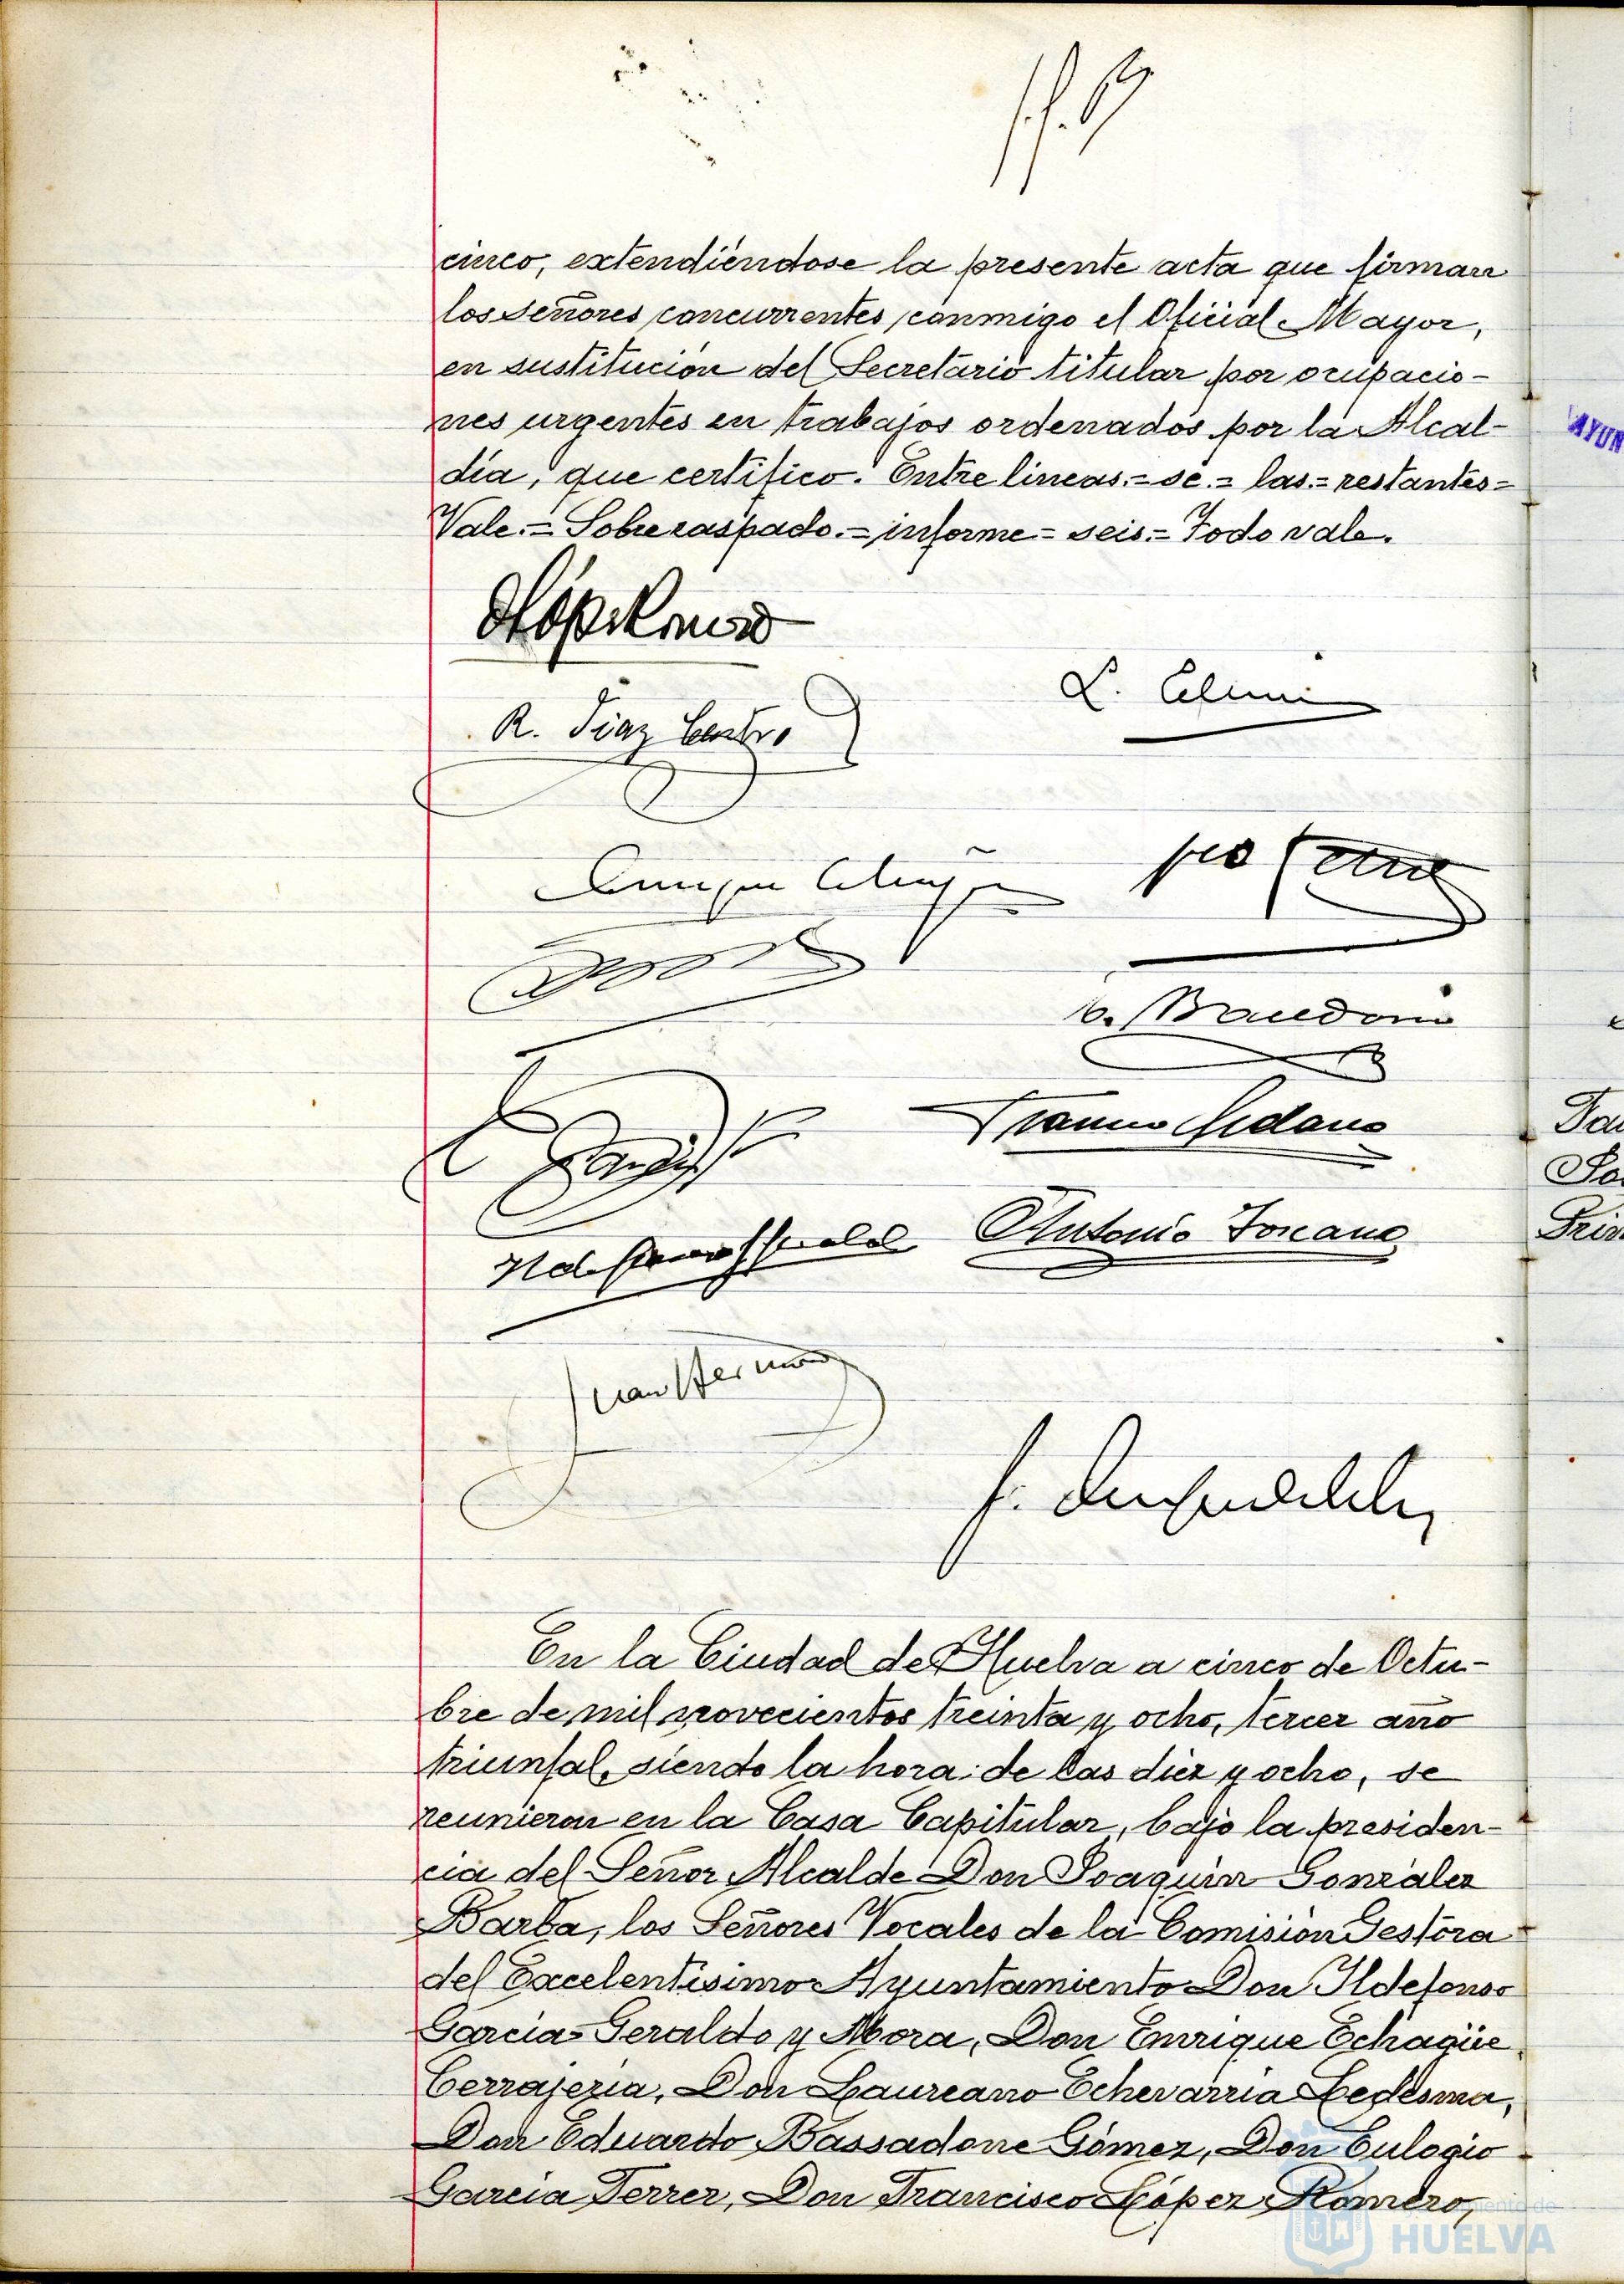 cinco, extendiéndose la presente acta que firman
los señores concurrentes, conmigo el Oficial Mayor,
en sustitución del Secretario titular por ocupacio-
nes urgentes en trabajos ordenados por la Alcal-
día, que certifico. Entre lineas.= se.= las.= restantes=
Vale.= Sobre raspado.= informe= seis.= Todo vale.
R. Diaz Castro
Antonio Toscano
En la Ciudad de Huelva a cinco de Octu-
bre de mil novecientos treinta y ocho, tercer año
triunfal, siendo la hora de las diez y ocho, se
reunieron en la Casa Capitular, bajo la presiden-
cia del Señor Alcalde Don Joaquín González
Barba, los Señores Vocales de la Comisión Gestora
del Excelentísimo Ayuntamiento Don Ildefonso
García-Geraldo y Mora, Don Enrique Echagüe
Cerrajería, Don Laureano Echevarría Ledesma,
Don Eduardo Bassadone Gómez, Don Eulogio
García Ferrer, Don Francisco López Romero,
Ayuntamiento de
HUELVA